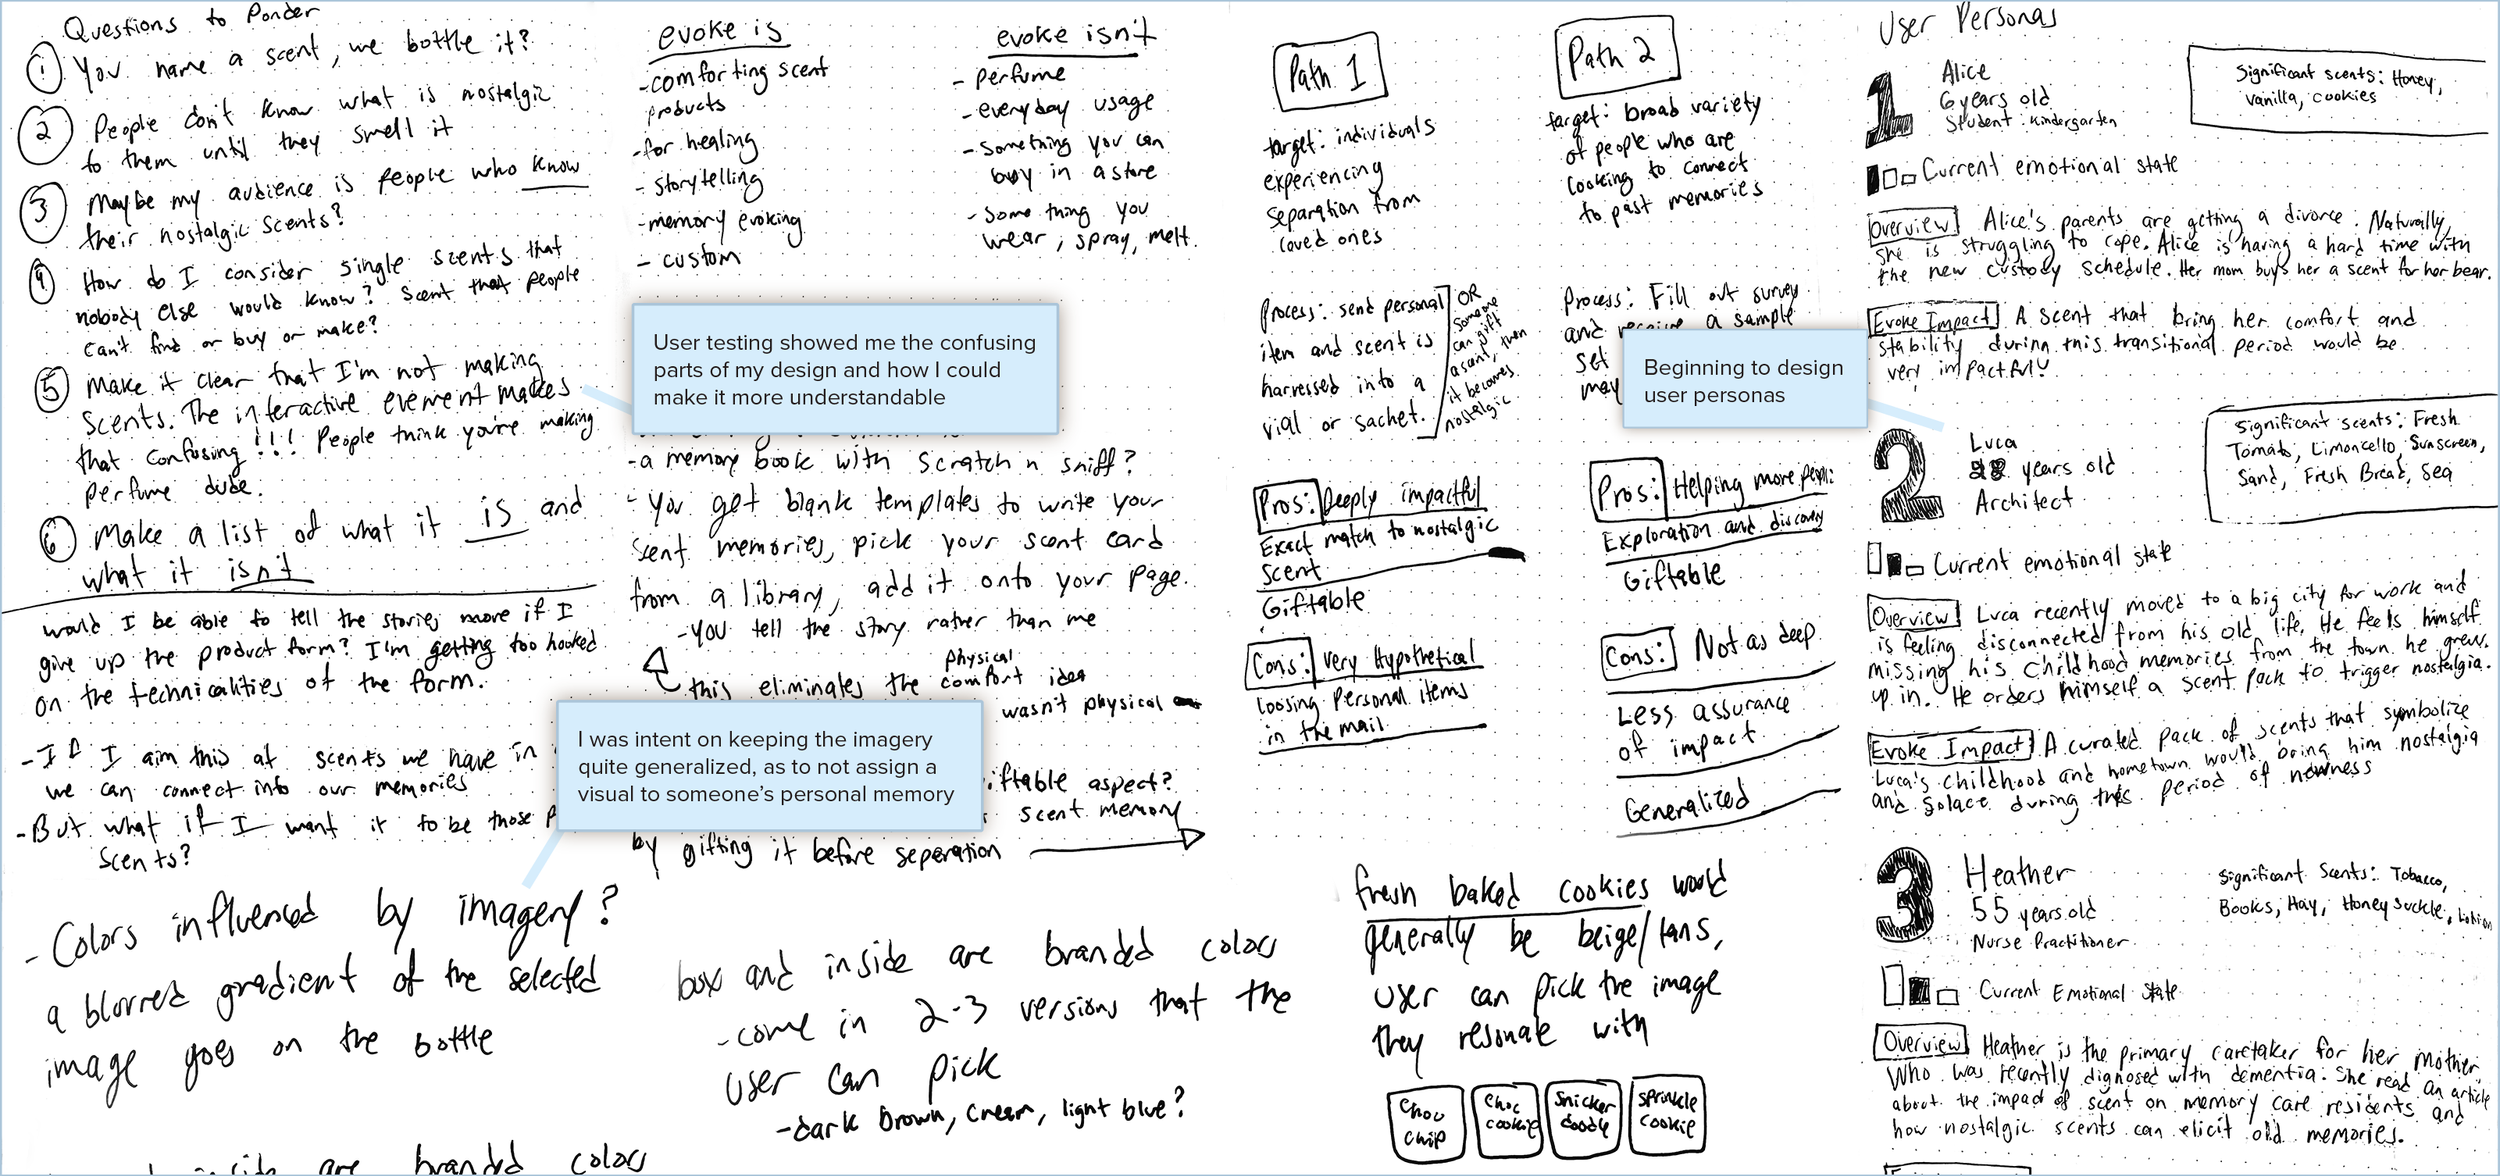 Questions to Ponder
1 You name a scent, we bottle it?
2 People don't know what is nostalgic
to them until they smell it
3 Maybe my audience is people who know
their nostalgic scents?
4 How do I consider single scents that
nobody else would know? Scent that people
can't find or buy or make?
5 Make it clear that I'm not making
scents. The interactive element makes
that confusing!!! People think you're making
perfume dude.
6 Make a list of what it is and
what it isn't
would I be able to tell the stories more if I
give up the product form? I'm getting too hooked
on the technicalities of the form.
- If I aim this at scents we have in
we can connect into our memories
- But what if I want it to be those
scents?
- Colors influenced by imagery?
a blurred gradient of the selected
image goes on the bottle
inside are branded colors
evoke is
- comforting scent
products
- for healing
- storytelling
- memory evoking
- custom
evoke isn't
- perfume
- everyday usage
- something you can
buy in a store
- something you
wear, spray, melt.
User testing showed me the confusing
parts of my design and how I could
make it more understandable
- a memory book with scratch n sniff?
- You get blank templates to write your
scent memories, pick your scent card
from a library, add it onto your page.
- you tell the story rather than me
this eliminates the physical comfort idea
wasn't physical
I was intent on keeping the imagery
quite generalized, as to not assign a
visual to someone's personal memory
iftable aspect?
scent memory
by gifting it before seperation
box and inside are branded colors
- come in 2-3 versions that the
user can pick
- dark brown, cream, light blue?
Path 1
target: individuals
experiencing
separation from
loved ones
Process: send personal
item and scent is
harvessed into a
vial or sachet.
OR
someone
can gift
a scent, then
it becomes
nostalgic
Pros: Deeply impactful
Exact match to nostalgic
scent
Giftable
Cons: Very Hypothetical
loosing personal items
in the mail
Path 2
target: broad variety
of people who are
looking to connect
to past memories
Process: Fill out survey
and receive a sample
set
may
Pros: Helping more people
Exploration and discovery
Giftable
Cons: Not as deep
Less assurance
of impact
Generalized
fresh baked cookies would
generally be beige/tans,
user can pick the image
they resonate with
choc
chip
choc
cookie
snicker
doodle
sprinkle
cookie
Beginning to design
user personas
User Personas
1
Alice
6 years old
Student: kindergarten
Significant scents: Honey,
vanilla, cookies
Current emotional state
Overview Alice's parents are getting a divorce. Naturally,
she is struggling to cope. Alice is having a hard time with
the new custody schedule. Her mom buys her a scent for her bear.
Evoke Impact A scent that bring her comfort and
stability during this transitional period would be
very impactful!
2
Luca
28 years old
Architect
Significant scents: Fresh
Tomato, Limoncello, Sunscreen,
Sand, Fresh Bread, Sea
Current emotional state
Overview Luca recently moved to a big city for work and
is feeling disconnected from his old life. He feels himself
missing his childhood memories from the town he grew
up in. He orders himself a scent pack to trigger nostalgia.
Evoke Impact A curated pack of scents that symbolize
Luca's childhood and hometown would bring him nostalgia
and solace during this period of newness
3
Heather
55 years old
Nurse Practitioner
Significant Scents: Tobacco,
Books, Hay, Honey suckle, Lotion
Current Emotional State
Overview Heather is the primary caretaker for her mother,
who was recently dignosed with dementia. She read an article
about the impact of scent on memory care residents and
how nostalgic scents can elicit old memories.